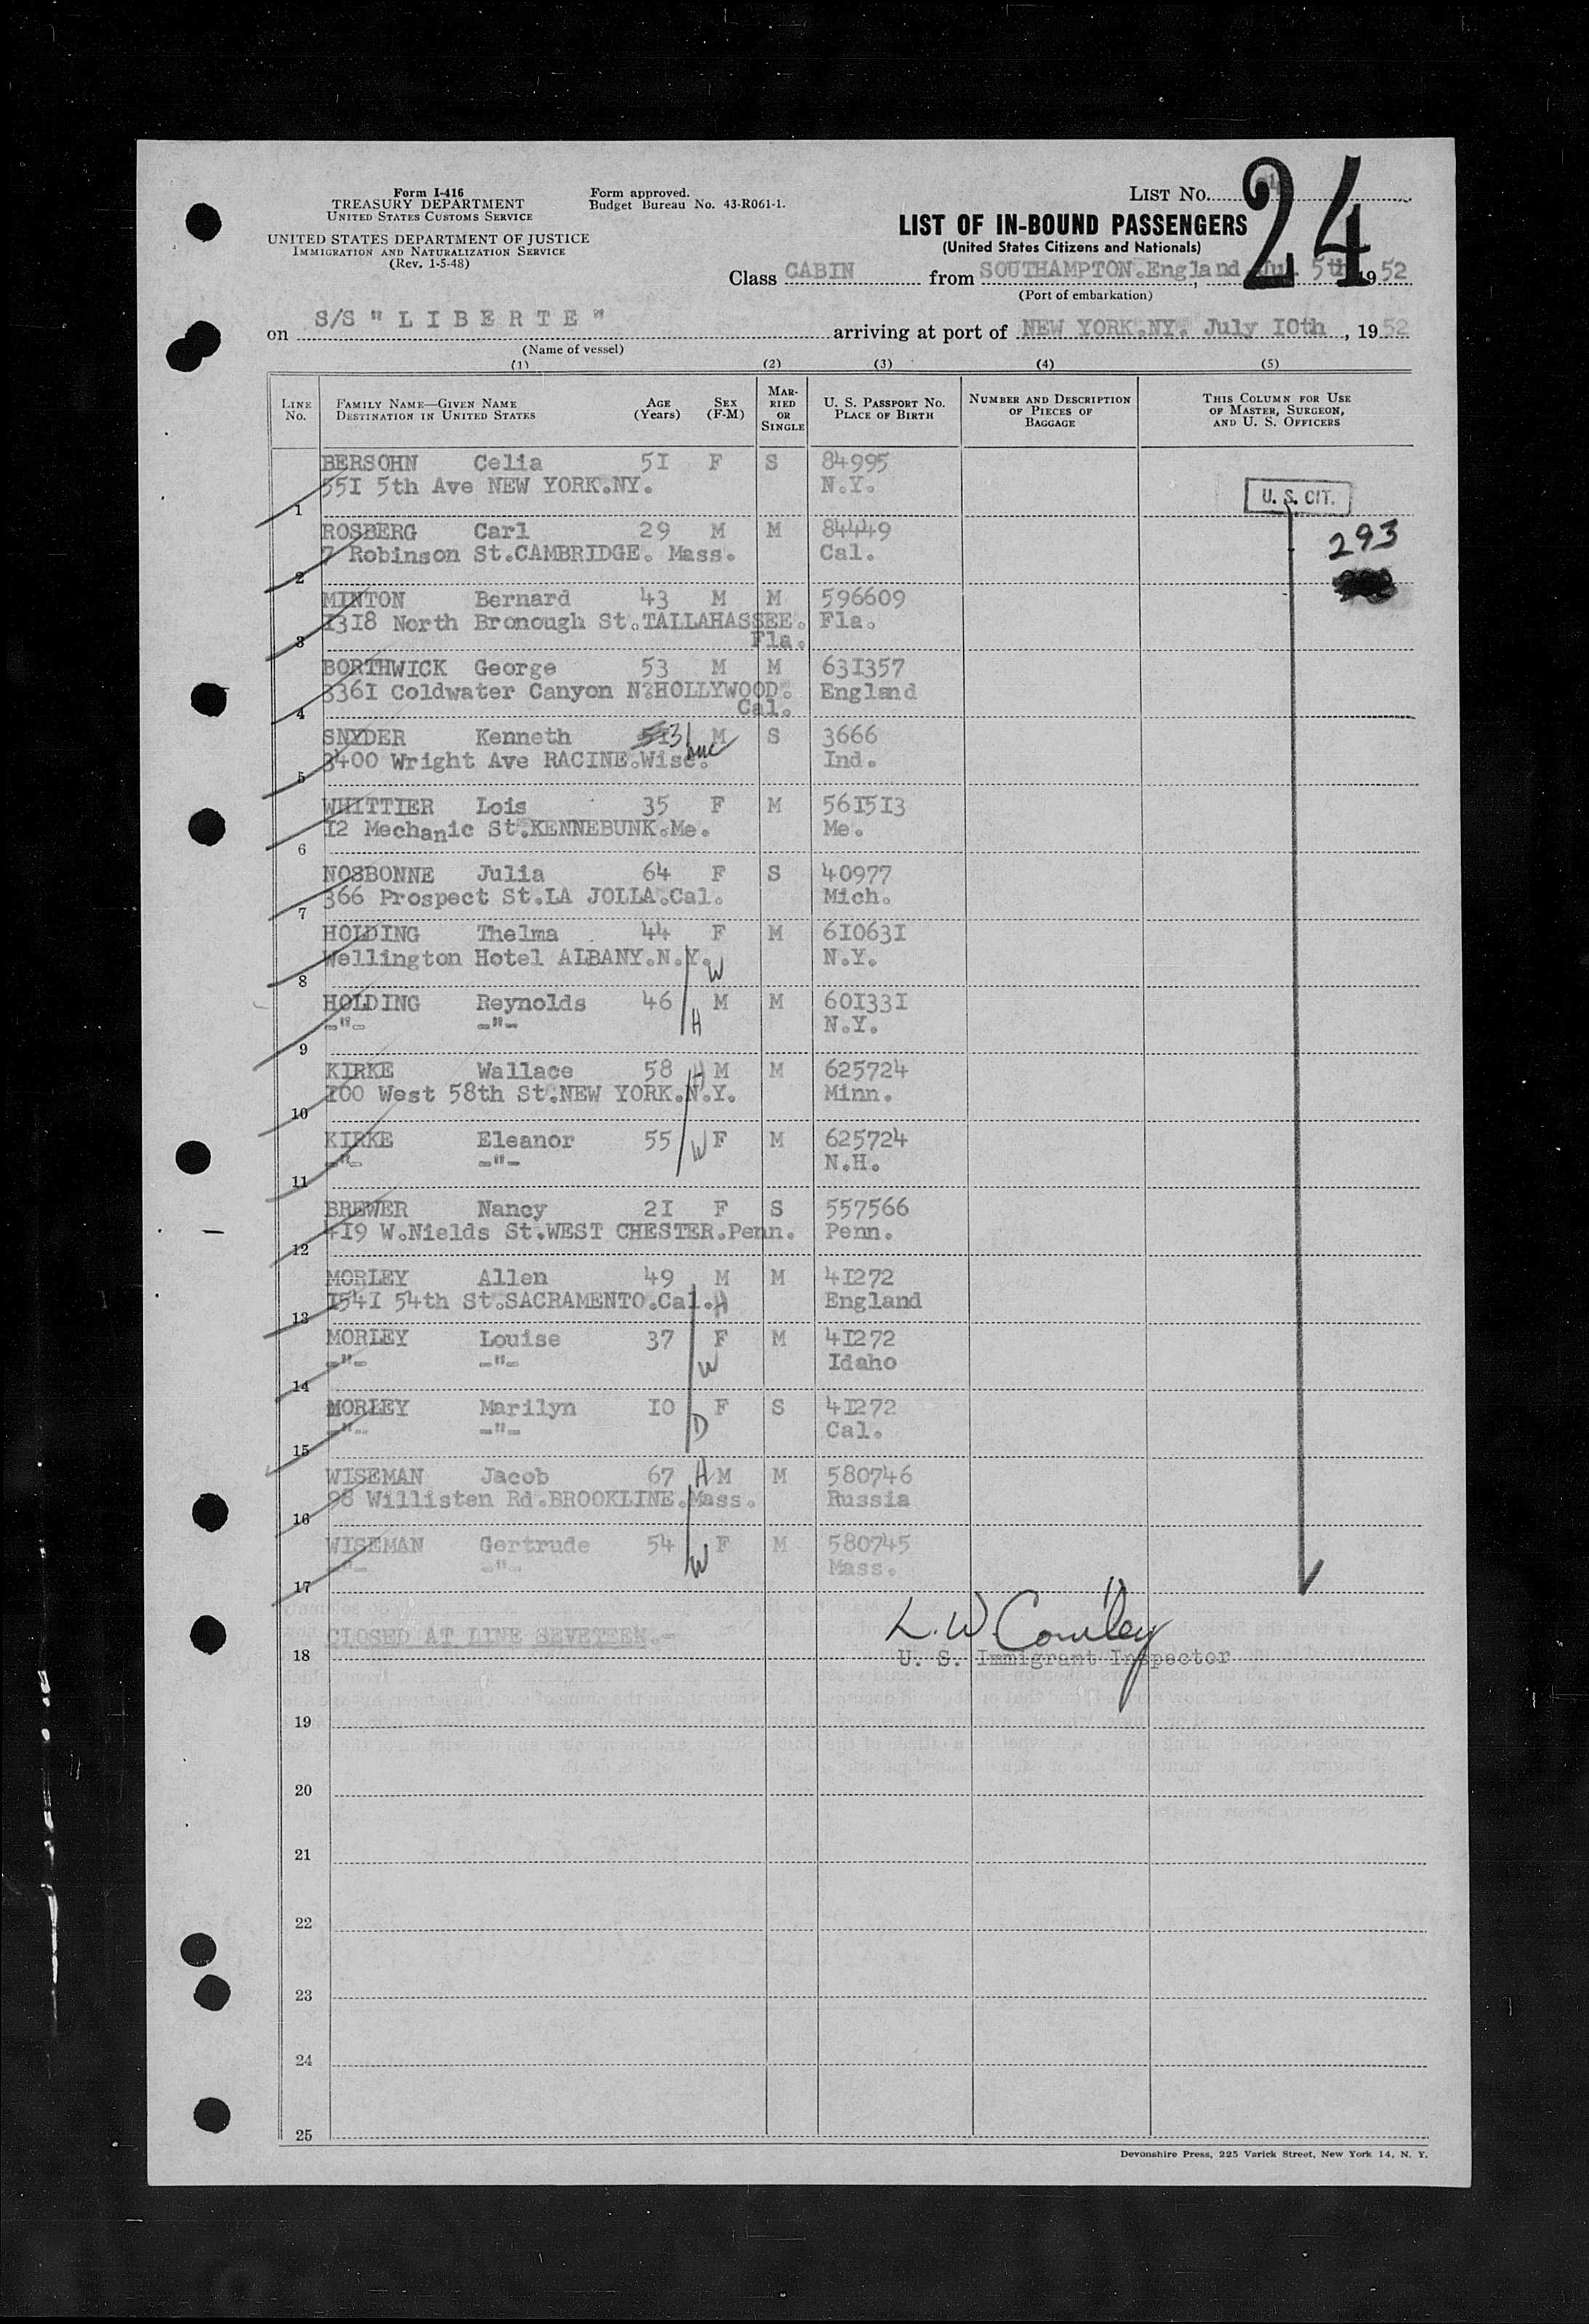 Form I-416
TREASURY DEPARTMENT
UNITED STATES CUSTOMS SERVICE
UNITED STATES DEPARTMENT OF JUSTICE
IMMIGRATION AND NATURALIZATION SERVICE
(Rev. 1-5-48)
Form approved.
Budget Bureau No. 43-R061-1.
LIST NO. 24
LIST OF IN-BOUND PASSENGERS
(United States Citizens and Nationals)
Class CABIN from SOUTHAMPTON.England, 5th 1952
(Port of embarkation)
on S/S " L I B E R T E " arriving at port of NEW YORK.NY. July I0th, 1952
(Name of vessel)
(1) (2) (3) (4) (5)
LINE NO. FAMILY NAME—GIVEN NAME DESTINATION IN UNITED STATES AGE (Years) SEX (F-M) MARRIED OR SINGLE U. S. PASSPORT NO. PLACE OF BIRTH NUMBER AND DESCRIPTION OF PIECES OF BAGGAGE THIS COLUMN FOR USE OF MASTER, SURGEON, AND U. S. OFFICERS
BERSOHN Celia 5I F S 84995
1 55I 5th Ave NEW YORK.NY. N.Y. U. S. CIT.
ROSBERG Carl 29 M M 84449 293
2 7 Robinson St.CAMBRIDGE. Mass. Cal.
MINTON Bernard 43 M M 596609
3 I3I8 North Bronough St.TALLAHASSEE. Fla.
Fla.
BORTHWICK George 53 M M 63I357
4 336I Coldwater Canyon N.HOLLYWOOD. England
Cal.
SNYDER Kenneth 31 M S 3666
5 3400 Wright Ave RACINE.Wisc. Ind.
WHITTIER Lois 35 F M 56I5I3
6 I2 Mechanic St.KENNEBUNK.Me. Me.
NOSBONNE Julia 64 F S 40977
7 366 Prospect St.LA JOLLA.Cal. Mich.
HOLDING Thelma 44 F M 6I063I
8 Wellington Hotel ALBANY.N.Y. W N.Y.
HOLDING Reynolds 46 M M 60I33I
9 -"- -"- H N.Y.
KIRKE Wallace 58 H M M 625724
10 I00 West 58th St.NEW YORK.N.Y. Minn.
KIRKE Eleanor 55 W F M 625724
11 -"- -"- N.H.
BREWER Nancy 2I F S 557566
12 4I9 W.Nields St.WEST CHESTER.Penn. Penn.
MORLEY Allen 49 M M 4I272
13 I54I 54th St.SACRAMENTO.Cal. H England
MORLEY Louise 37 F M 4I272
14 -"- -"- W Idaho
MORLEY Marilyn I0 F S 4I272
15 -"- -"- D Cal.
WISEMAN Jacob 67 H M M 580746
16 98 Willisten Rd.BROOKLINE.Mass. Russia
WISEMAN Gertrude 54 W F M 580745
17 -"- -"- Mass.
18 CLOSED AT LINE SEVETEEN.-
L. W. Cowley
U. S. Immigrant Inspector
19
20
21
22
23
24
25
Devonshire Press, 225 Varick Street, New York 14, N. Y.